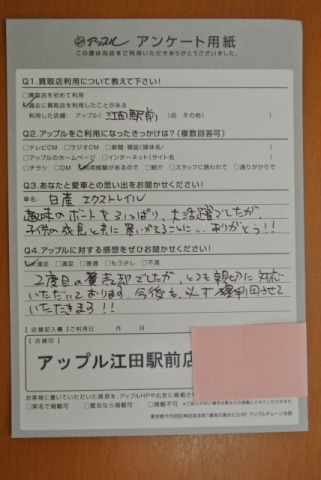 アップル アンケート用紙
この度は当店をご利用いただきありがとうございました。
Q1.買取店利用について教えて下さい!
□買取店を初めて利用
☑過去に買取店を利用したことがある
利用した店舗：アップル（江田駅前）店 その他（ ）
Q2.アップルをご利用になったきっかけは?(複数回答可)
□テレビCM □ラジオCM □新聞・雑誌（媒体名/ ）
□アップルのホームページ □インターネット（サイト名 ）
□チラシ □DM ☑利用経験があるので □紹介 □スタッフに誘われて □通りがかりで
Q3.あなたと愛車との思い出をお聞かせください!
車名: 日産 エクストレイル
趣味のボートを引っぱり、大活躍でしたが、
子供の成長と共に買いかえることに、、ありがとう!!
Q4.アップルに対する感想をぜひお聞かせください!
☑満足 □満足 □普通 □もう少し □不満
2度目の買売却でしたが、とても親切に対応
いただいております。今後も、必ず利用させて
いただきます!!
【店舗記入欄】ご利用日： 月 日
【店舗印】
アップル江田駅前店
お客様に書いていただいた感想を、アップルHPや広告に掲載さ
□実名で掲載可 □匿名なら掲載可 □掲載不可